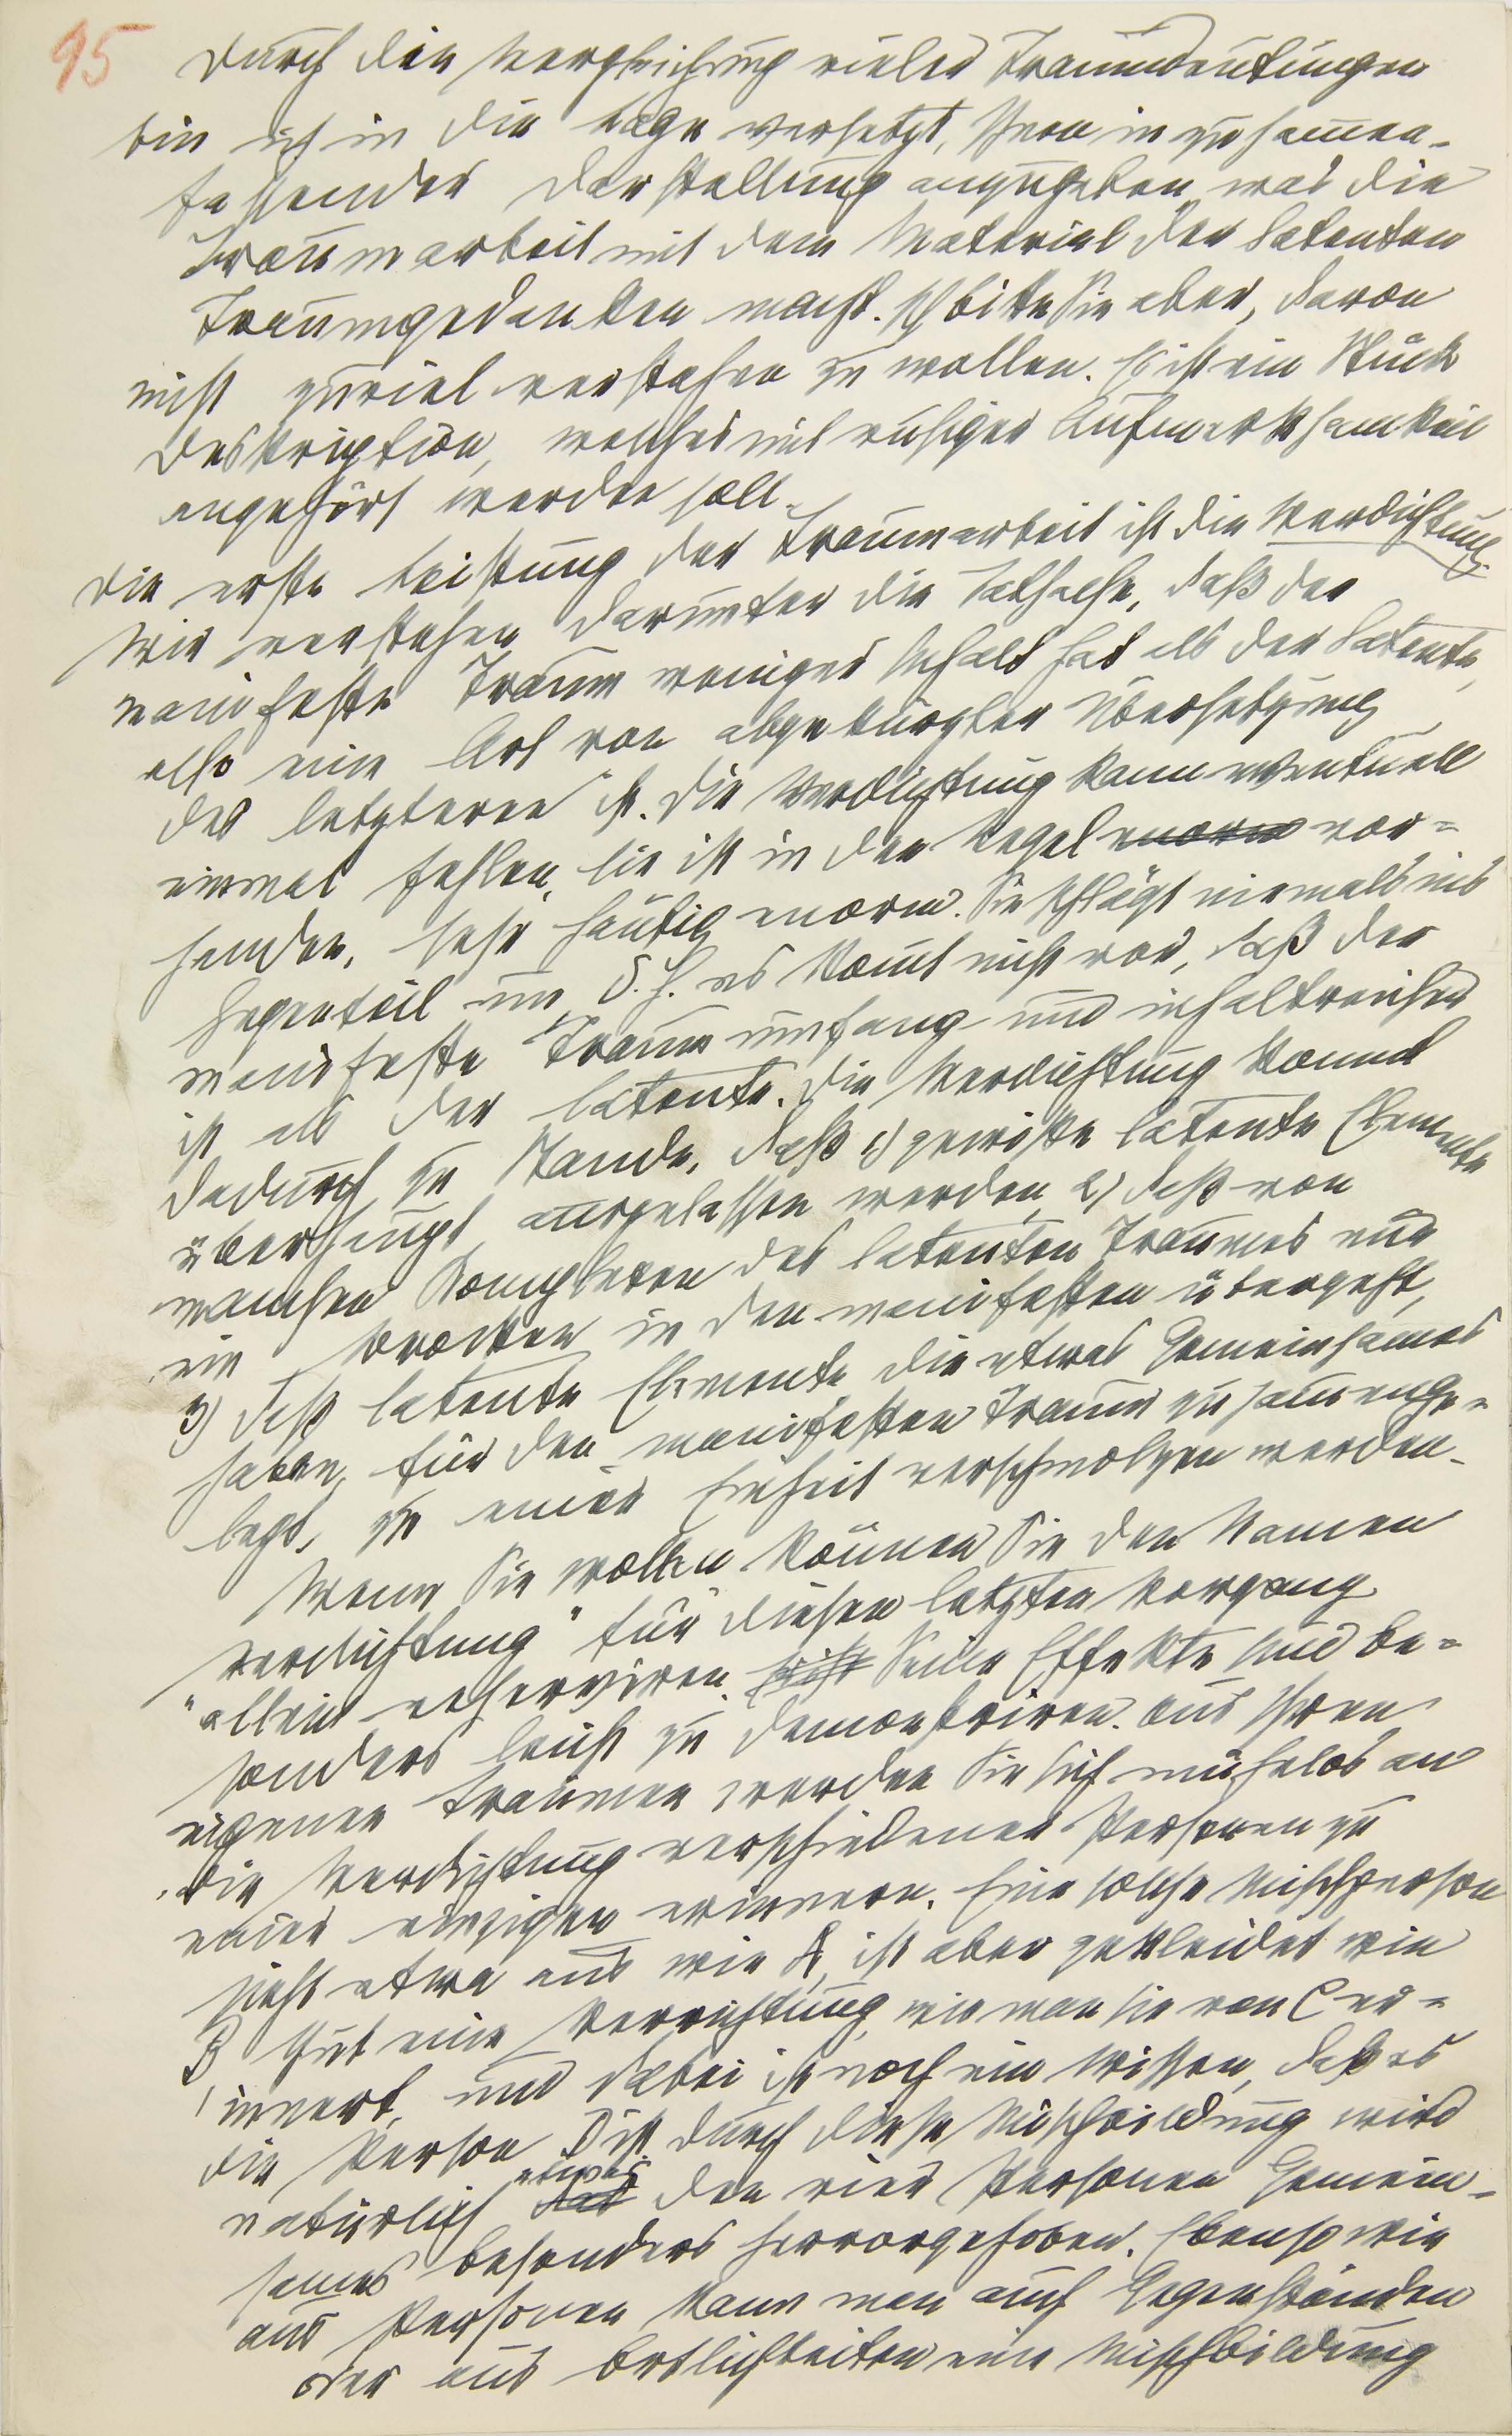 95
Durch die Vergleichung vieler Traumdeutungen
bin ich in die Lage versetzt, Ihnen in zusammen-
fassender Darstellung anzugeben, was die
Traumarbeit mit dem Material der latenten
Traumgedanken macht. Ich bitte Sie aber, davon
nicht zuviel verstehen zu wollen. Es ist ein Stück
Deskription, welches mit ruhiger Aufmerksamkeit
angehört werden soll.
Die erste Leistung der Traumarbeit ist die Verdichtung.
Wir verstehen darunter die Tatsache, daß der
manifeste Traum weniger Inhalt hat als der latente,
also eine Art von abgekürzter Übersetzung
des letzteren ist. Die Verdichtung kann eventuell
einmal fehlen, sie ist in der Regel enorm vor-
handen, sehr häufig enorm. Sie schlägt niemals ins
Gegenteil um d.h. es kommt nicht vor, daß der
manifeste Traum umfang- und inhaltreicher
ist als der latente. Die Verdichtung kommt
dadurch zu Stande, daß 1) gewisse latente Elemente
überhaupt ausgelassen werden, 2) daß von
manchen Komplexen des latenten Traumes nur
ein Brocken in den manifesten übergeht,
3) daß latente Elemente die etwas Gemeinsames
haben, für den manifesten Traum zusammenge-
legt, zu einer Einheit verschmolzen werden.
Wenn Sie wollen können Sie den Namen
„Verdichtung" für diesen letzten Vorgang
allein reserviren. Seine Effekte sind be-
sonders leicht zu demonstriren. Aus Ihren
eigenen Träumen werden Sie sich mühelos an
die Verdichtung verschiedener Personen zu
einer einzigen erinnern. Eine solche Mischperson
sieht etwa aus wie A, ist aber gekleidet wie
B, thut eine Verrichtung, wie man sie von C er-
innert, und dabei ist noch ein Wissen, daß es
die Person D ist. Durch diese Mischbildung wird
natürlich das etwas den vier Personen Gemein-
sames besonders hervorgehoben. Ebenso wie
aus Personen kann man auch Gegenständen
oder aus Örtlichkeiten eine Mischbildung